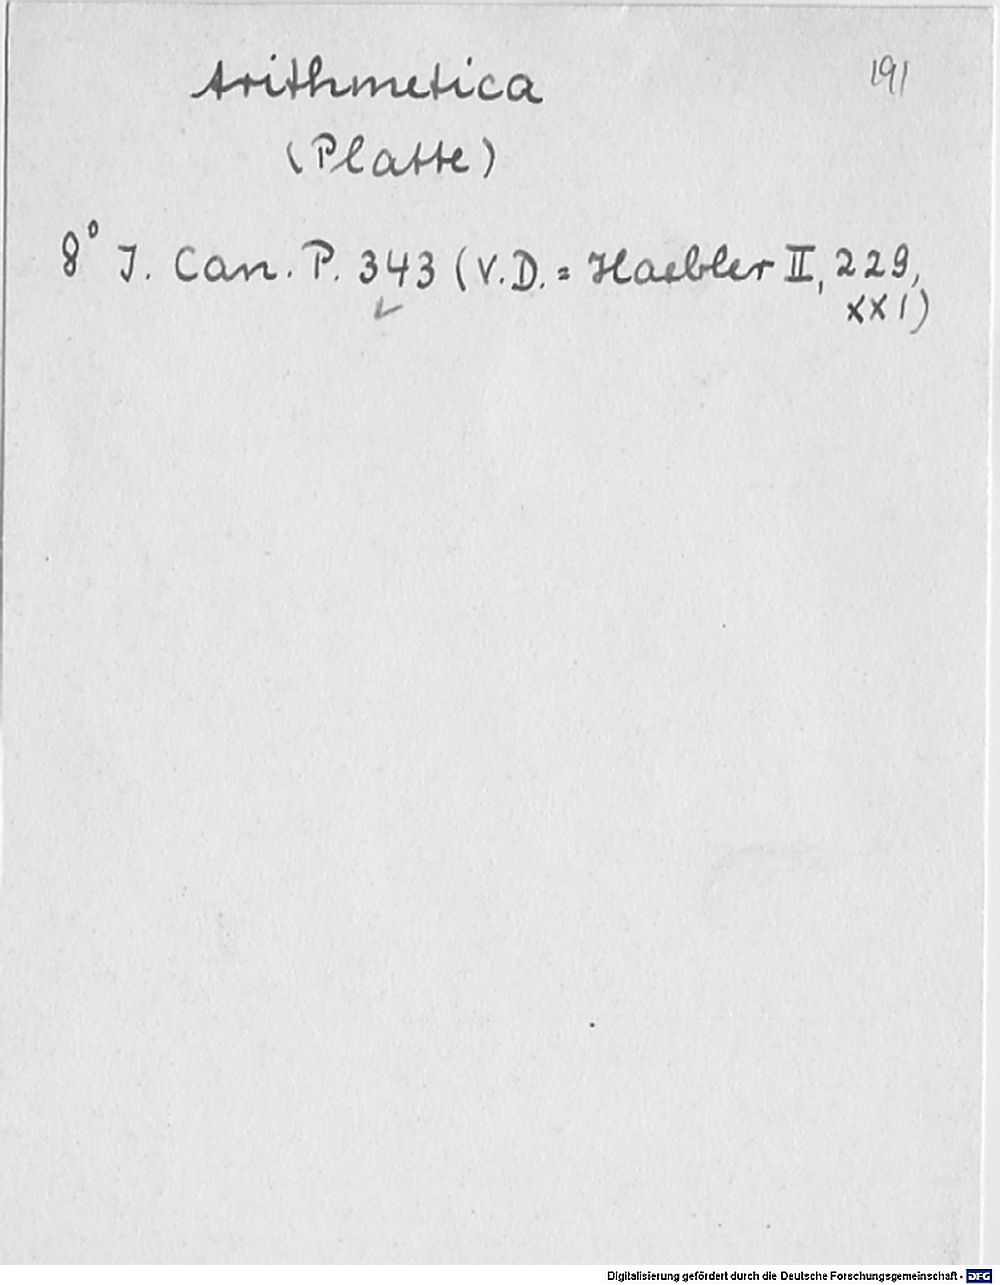 Arithmetica
191
(Platte)
8° J. Can. P. 343 (V.D. = Haebler II, 229,
XXI)
Digitalisierung gefördert durch die Deutsche Forschungsgemeinschaft - DFG